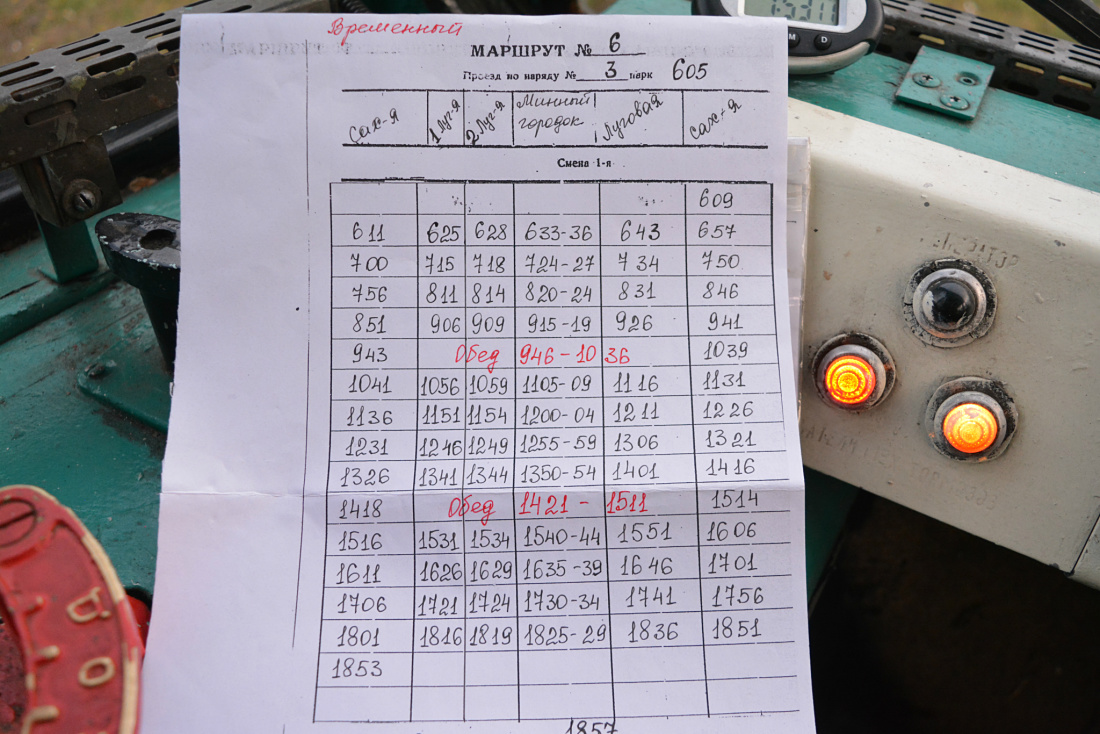 Временный
МАРШРУТ № 6
Проезд по наряду № 3 парк 605
Сах-я 1 Луг-я 2 Луг-я Минный городок Луговая Сах-я
Смена 1-я
609
611 625 628 633-36 643 657
700 715 718 724-27 734 750
756 811 814 820-24 831 846
851 906 909 915-19 926 941
943 Обед 946-1036 1039
1041 1056 1059 1105-09 1116 1131
1136 1151 1154 1200-04 1211 1226
1231 1246 1249 1255-59 1306 1321
1326 1341 1344 1350-54 1401 1416
1418 Обед 1421-1511 1514
1516 1531 1534 1540-44 1551 1606
1611 1626 1629 1635-39 1646 1701
1706 1721 1724 1730-34 1741 1756
1801 1816 1819 1825-29 1836 1851
1853
1857
M D